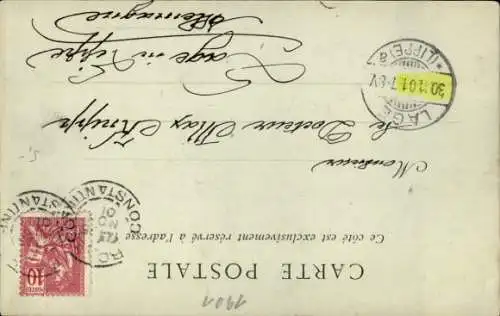 CARTE POSTALE
Ce côté est exclusivement réservé à l'adresse
CONSTANTINE
CONSTANTINE
10
Monsieur
le Docteur Max
Lage in Lippe
Allemagne
LAGE
30 01 7-8V
*(LIPPE) a
1901